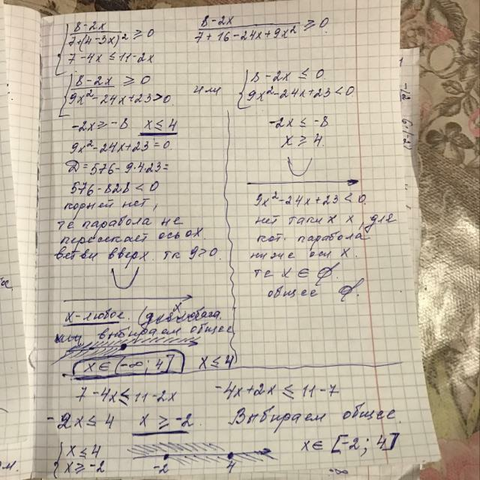 { 8-2x / 7+(4-3x)² ≥ 0
7-4x ≤ 11-2x
8-2x / 7+16-24x+9x² ≥ 0
{ 8-2x ≥ 0
9x²-24x+23>0
или
{ 8-2x ≤ 0
9x²-24x+23<0
-2x ≥ -8 x ≤ 4
9x²-24x+23=0
D=576-9·4·23=
576-828<0
корней нет,
те парабола не
пересекает ось ох
ветви вверх тк 9>0.
x-любое.
выбираем общее
x∈[-∞; 4] x≤4
-2x ≤ -8
x ≥ 4
9x²-24x+23<0
нет таких x, для
кот. парабола
ниже оси x.
те x∈ ∅
общее ∅.
7-4x ≤ 11-2x -4x+2x ≤ 11-7
-2x ≤ 4 x ≥ -2 Выбираем общее
{ x ≤ 4
x ≥ -2
-2 4
x∈ [-2; 4]
-∞